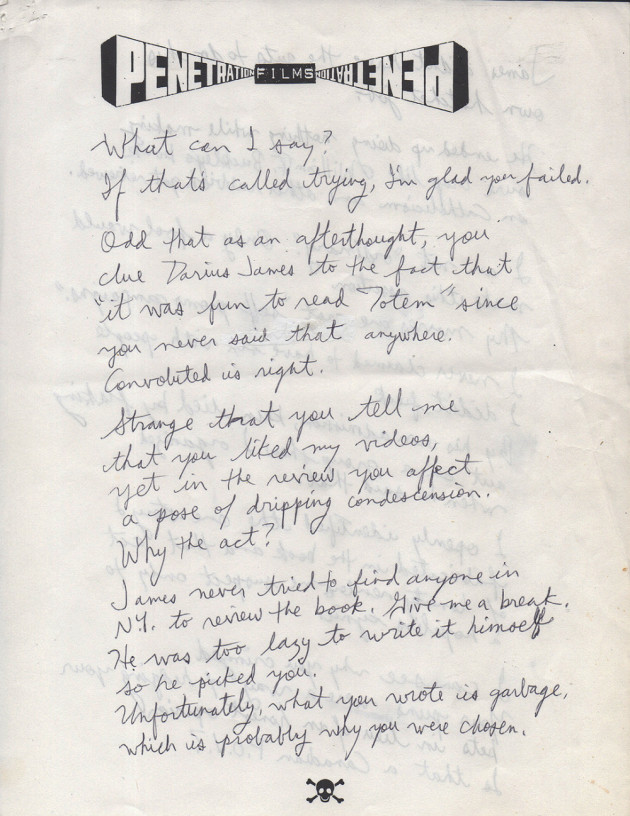 PENETRATION FILMS PENETRATION
What can I say?
If that's called trying, I'm glad you failed.
Odd that as an afterthought, you
clue Darius James to the fact that
"it was fun to read "Totem" since
you never said that anywhere.
Convoluted is right.
Strange that you tell me
that you liked my videos,
yet in the review you affect
a pose of dripping condescension.
Why the act?
James never tried to find anyone in
N.Y. to review the book. Give me a break.
He was too lazy to write it himself
so he picked you.
Unfortunately, what you wrote is garbage,
which is probably why you were chosen.